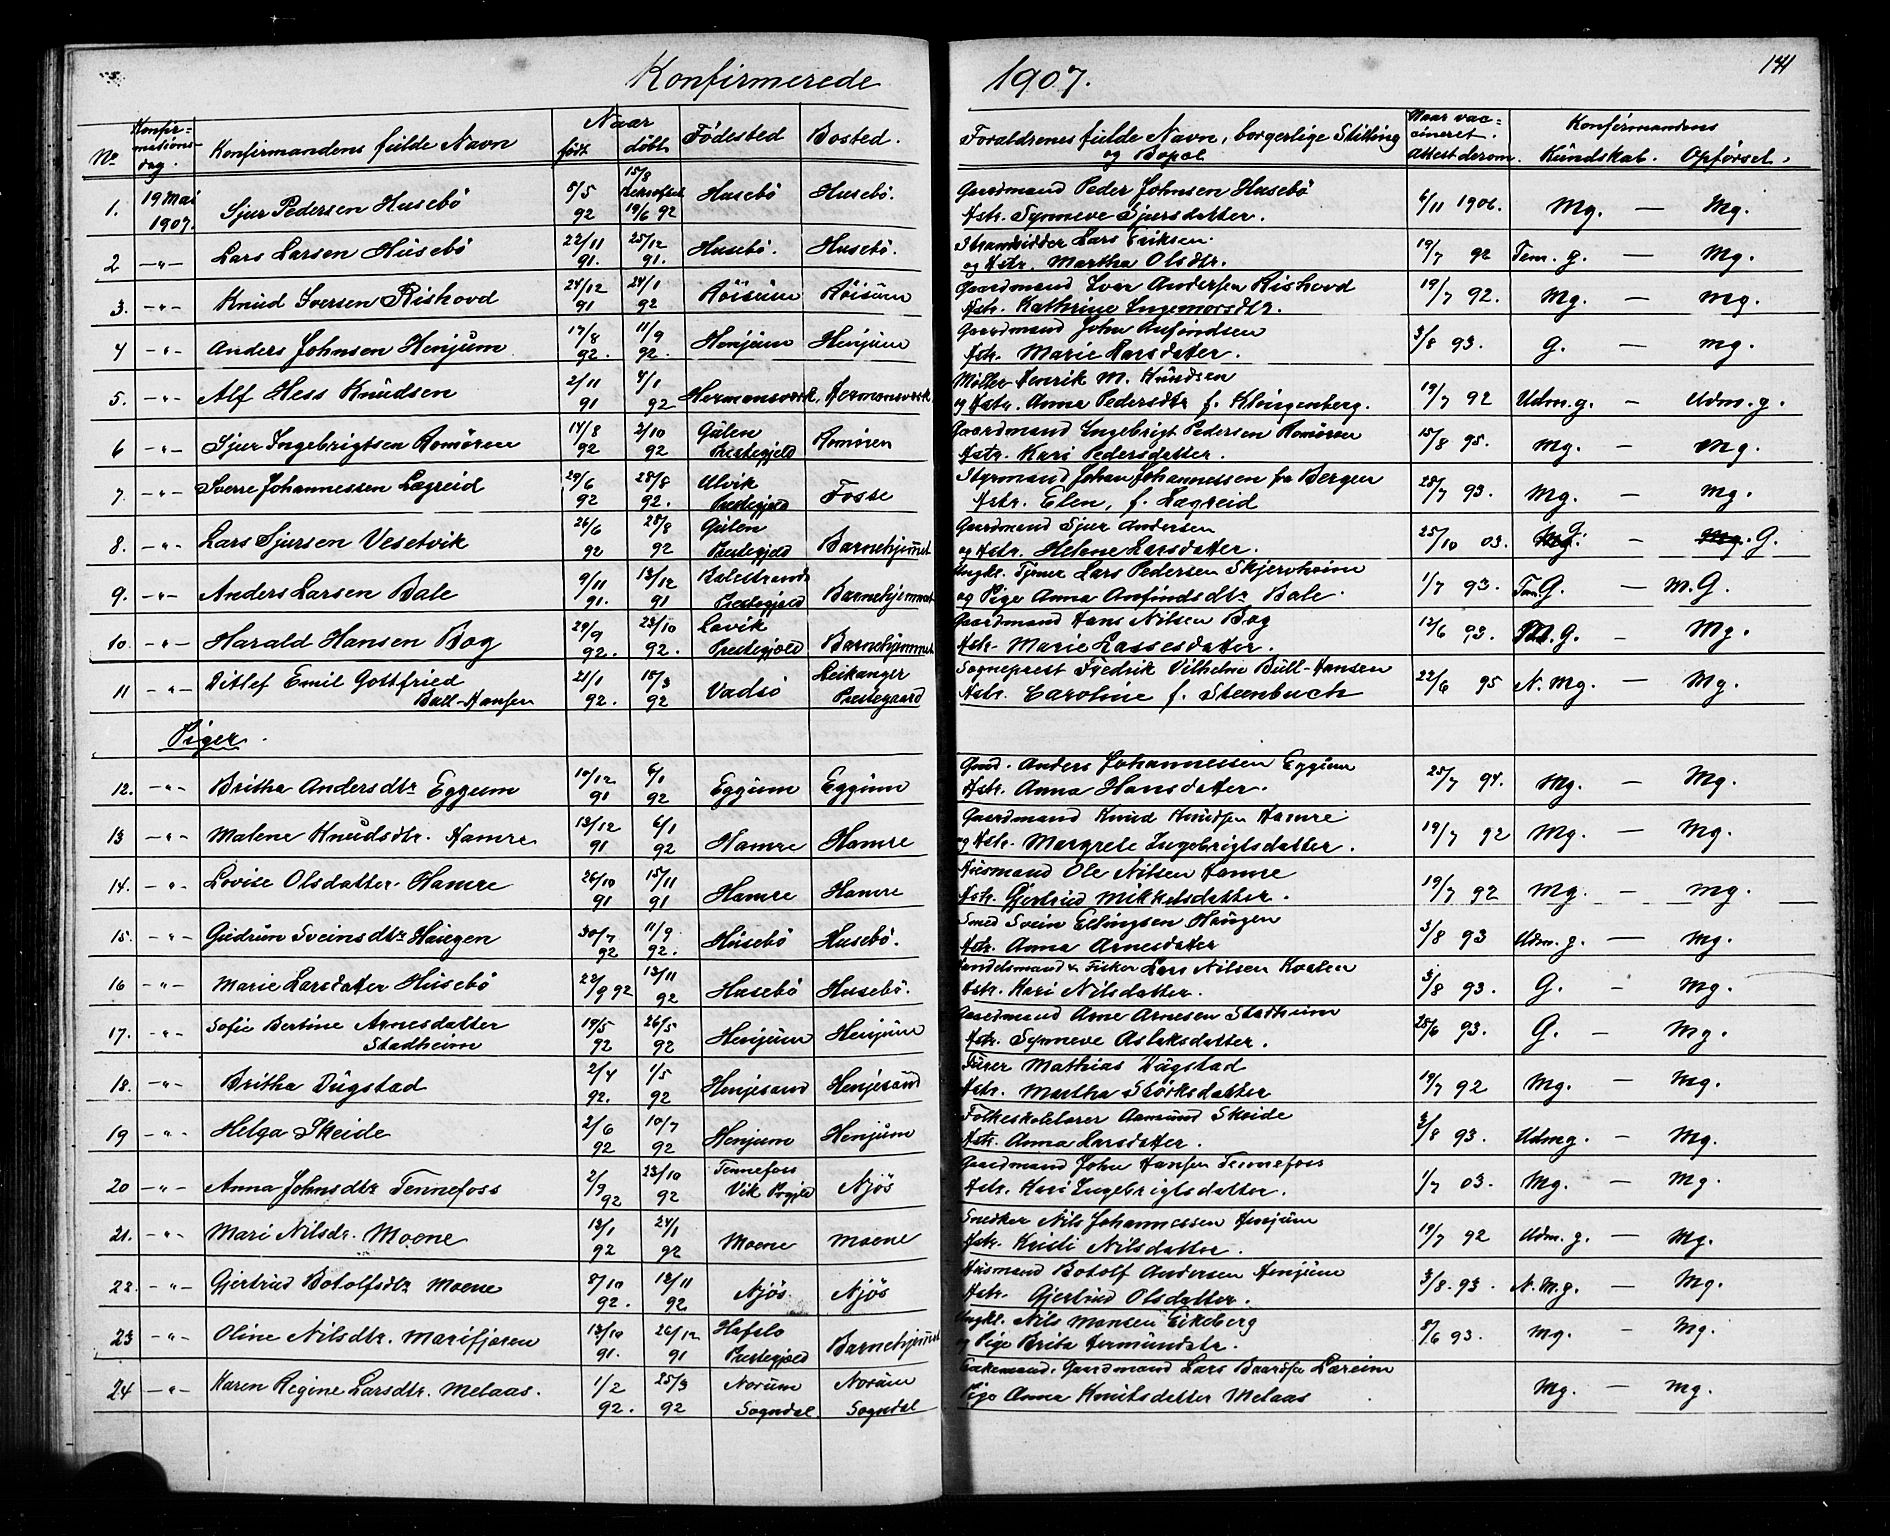 Konfirmerede 1907. 141
No Konfirmationsdag. Konfirmandens fulde Navn Naar født døbt Fødested Bosted. Forældrenes fulde Navn, borgerlige Stilling og Bopæl Naar vaccineret. Attest derom. Konfirmandens Kundskab. Opførsel.
1. 19 Mai 1907. Sjur Pedersen Husebö 5/5 92 15/8 19/6 92 Husebö Husebö. Gaardmand Peder Johnsen Husebö
Hstr. Synneve Sjursdatter. 6/11 1906. Mg. — Mg.
2 —"— Lars Larsen Husebö 22/11 91. 25/12 91. Husebö. Husebö. Strandsidder Lars Eriksen.
og Hstr. Martha Olsdtr. 19/7 92 Tem. g. — Mg.
3. —"— Knud Iversen Rishovd 24/12 91 24/1 92 Röisüm Röisüm Gaardmand Iver Andersen Rishovd
Hstr. Kathrine Ingemorsdtr. 19/7 92. Mg. — Mg.
4 —"— Anders Johnsen Henjum 17/8 92. 11/9 92. Henjüm Henjüm Gaardmand John Anfindsen
Hstr. Marie Larsdatter. 3/8 93. G. — Mg.
5. —"— Alf Hess Knudsen 2/11 91 4/1 92 Hermansverk. Hermansverk Møller Henrik M. Knudsen
og Hstr. Anna Pedersdtr f. Klingenberg. 19/7 92 Udm. g. — Udm. g.
6 —"— Sjur Ingebrigtsen Romören 14/8 92 2/10 92 Gülen Prestegjeld Romören Gaardmand Ingebrigt Pedersen Romören
Hstr. Kari Pedersdatter. 15/8 95. Mg. — Mg.
7. —"— Sverre Johannessen Lægreid 29/6 92 28/8 92. Ulvik Prestegjeld Fosse Styrmand Johan Johannessen fra Bergen
Hstr. Elen, f. Lægreid 28/7 93. Mg. — Mg.
8. —"— Lars Sjursen Vesetvik 26/6 92 28/8 92 Gülen Prestegjeld Barnehjemmet Gaardmand Sjur Andersen
og Hstr. Helene Larsdatter. 25/10 03. G. — G.
9. —"— Anders Larsen Bale 9/11 91. 13/12 91 Balestrands Prestegjeld Barnehjemmet Ungkl. Tjener Lars Pedersen Skjervheim
og Pige Anna Anfindsdtr Bale. 1/7 93. Tem. G. — M. G.
10. —"— Harald Hansen Bog 29/9 92. 23/10 92. Lavik Prestegjeld Barnehjemmet Gaardmand Hans Nilsen Bog
Hstr. Marie Lassesdatter. 12/6 93. G. — Mg.
11 —"— Ditlef Emil Gottfried Bull-Hansen 21/1 92. 18/3 92 Vadsö Leikanger Prestegaard Sogneprest Fredrik Vilhelm Bull-Hansen
Hstr. Caroline f. Steenbuch 22/6 95 N. Mg. — Mg.
Piger.
12. —"— Britha Andersdtr Eggum 10/12 91 6/1 92 Eggüm Eggüm Gmd. Anders Johannessen Eggum
Hstr. Anna Hansdatter. 25/7 94. Mg. — Mg.
13 —"— Malene Knudsdtr. Hamre 13/12 91 6/1 92 Hamre Hamre Gaardmand Knud Knudsen Hamre
og Hstr. Margrete Ingebrigtsdatter. 19/7 92 Mg. — Mg.
14. —"— Lovise Olsdatter Hamre 26/10 91 15/11 91 Hamre Hamre Husmand Ole Nilsen Hamre
Hstr. Gjertrud Mikkelsdatter. 19/7 92 Mg. — Mg.
15. —"— Gudrun Sveinsdtr Haugen 30/7 92 11/9 92. Husebö Husebö. Smed Svein Ellingsen Haugen
Hstr. Anna Arnesdatter 3/8 93 Udm. g. — Mg.
16 —"— Marie Larsdatter Husebö 22/9 92 13/11 92 Husebö Husebö. Handelsmand & Fisker Lars Nilsen Kvalen
Hstr. Kari Nilsdatter. 3/8 93. G. — Mg.
17. —"— Sofie Bertine Arnesdatter Stadheim 19/5 92 26/5 92 Henjüm Henjüm Gaardmand Arne Arnesen Stadheim
Hstr. Synneve Aslaksdatter. 28/6 93. G. — Mg.
18. —"— Britha Dugstad 2/4 92. 1/5 92 Henjesand Henjesand Mathias Dugstad
Hstr. Martha Störksdatter 19/7 92 Mg. — Mg.
19 —"— Helga Skeide 2/6 92 10/7 92 Henjum Henjüm Folkeskolelærer Aamund Skeide
Hstr. Anna Larsdatter. 3/8 93. Udmg. — Mg.
20 —"— Anna Johnsdtr Tennefoss 2/9 92 23/10 92 Tennefoss Vik Prgjld Njös Gaardmand John Hansen Tennefoss
Hstr. Kari Ingebrigtsdatter. 1/7 03. Mg. — Mg.
21. —"— Mari Nilsdr. Moene 13/1 92 24/1 92 Moene Moene Snedker Nils Johannessen Henjum
Hstr. Kristi Nilsdatter. 19/7 92 Udm. g. — Mg.
22. —"— Gjertrud Botolfsdtr Moene 8/10 92. 13/11 92 Njös. Njös Husmand Botolf Andersen Henjüm
Hstr. Gjertrud Olsdatter. 3/8. 93. N. M. g. — Mg.
23 —"— Oline Nilsdtr. Marifjøren 13/10 91. 26/12 91 Hafslo Prestegjeld Barnehjemmet Ungkl. Nils Monsen Eikeberg
og Pige Brita Hermundsdtr. 8/6 93. Mg. — Mg.
24 —"— Karen Regine Larsdtr. Melaas. 1/2 92. 25/3 92 Norum Sogndal. Norum Sogndal Enkemand. Gaardmand Lars Baardsen Læreim
Pige Anna Knutsdatter Melaas Mg. — Mg.